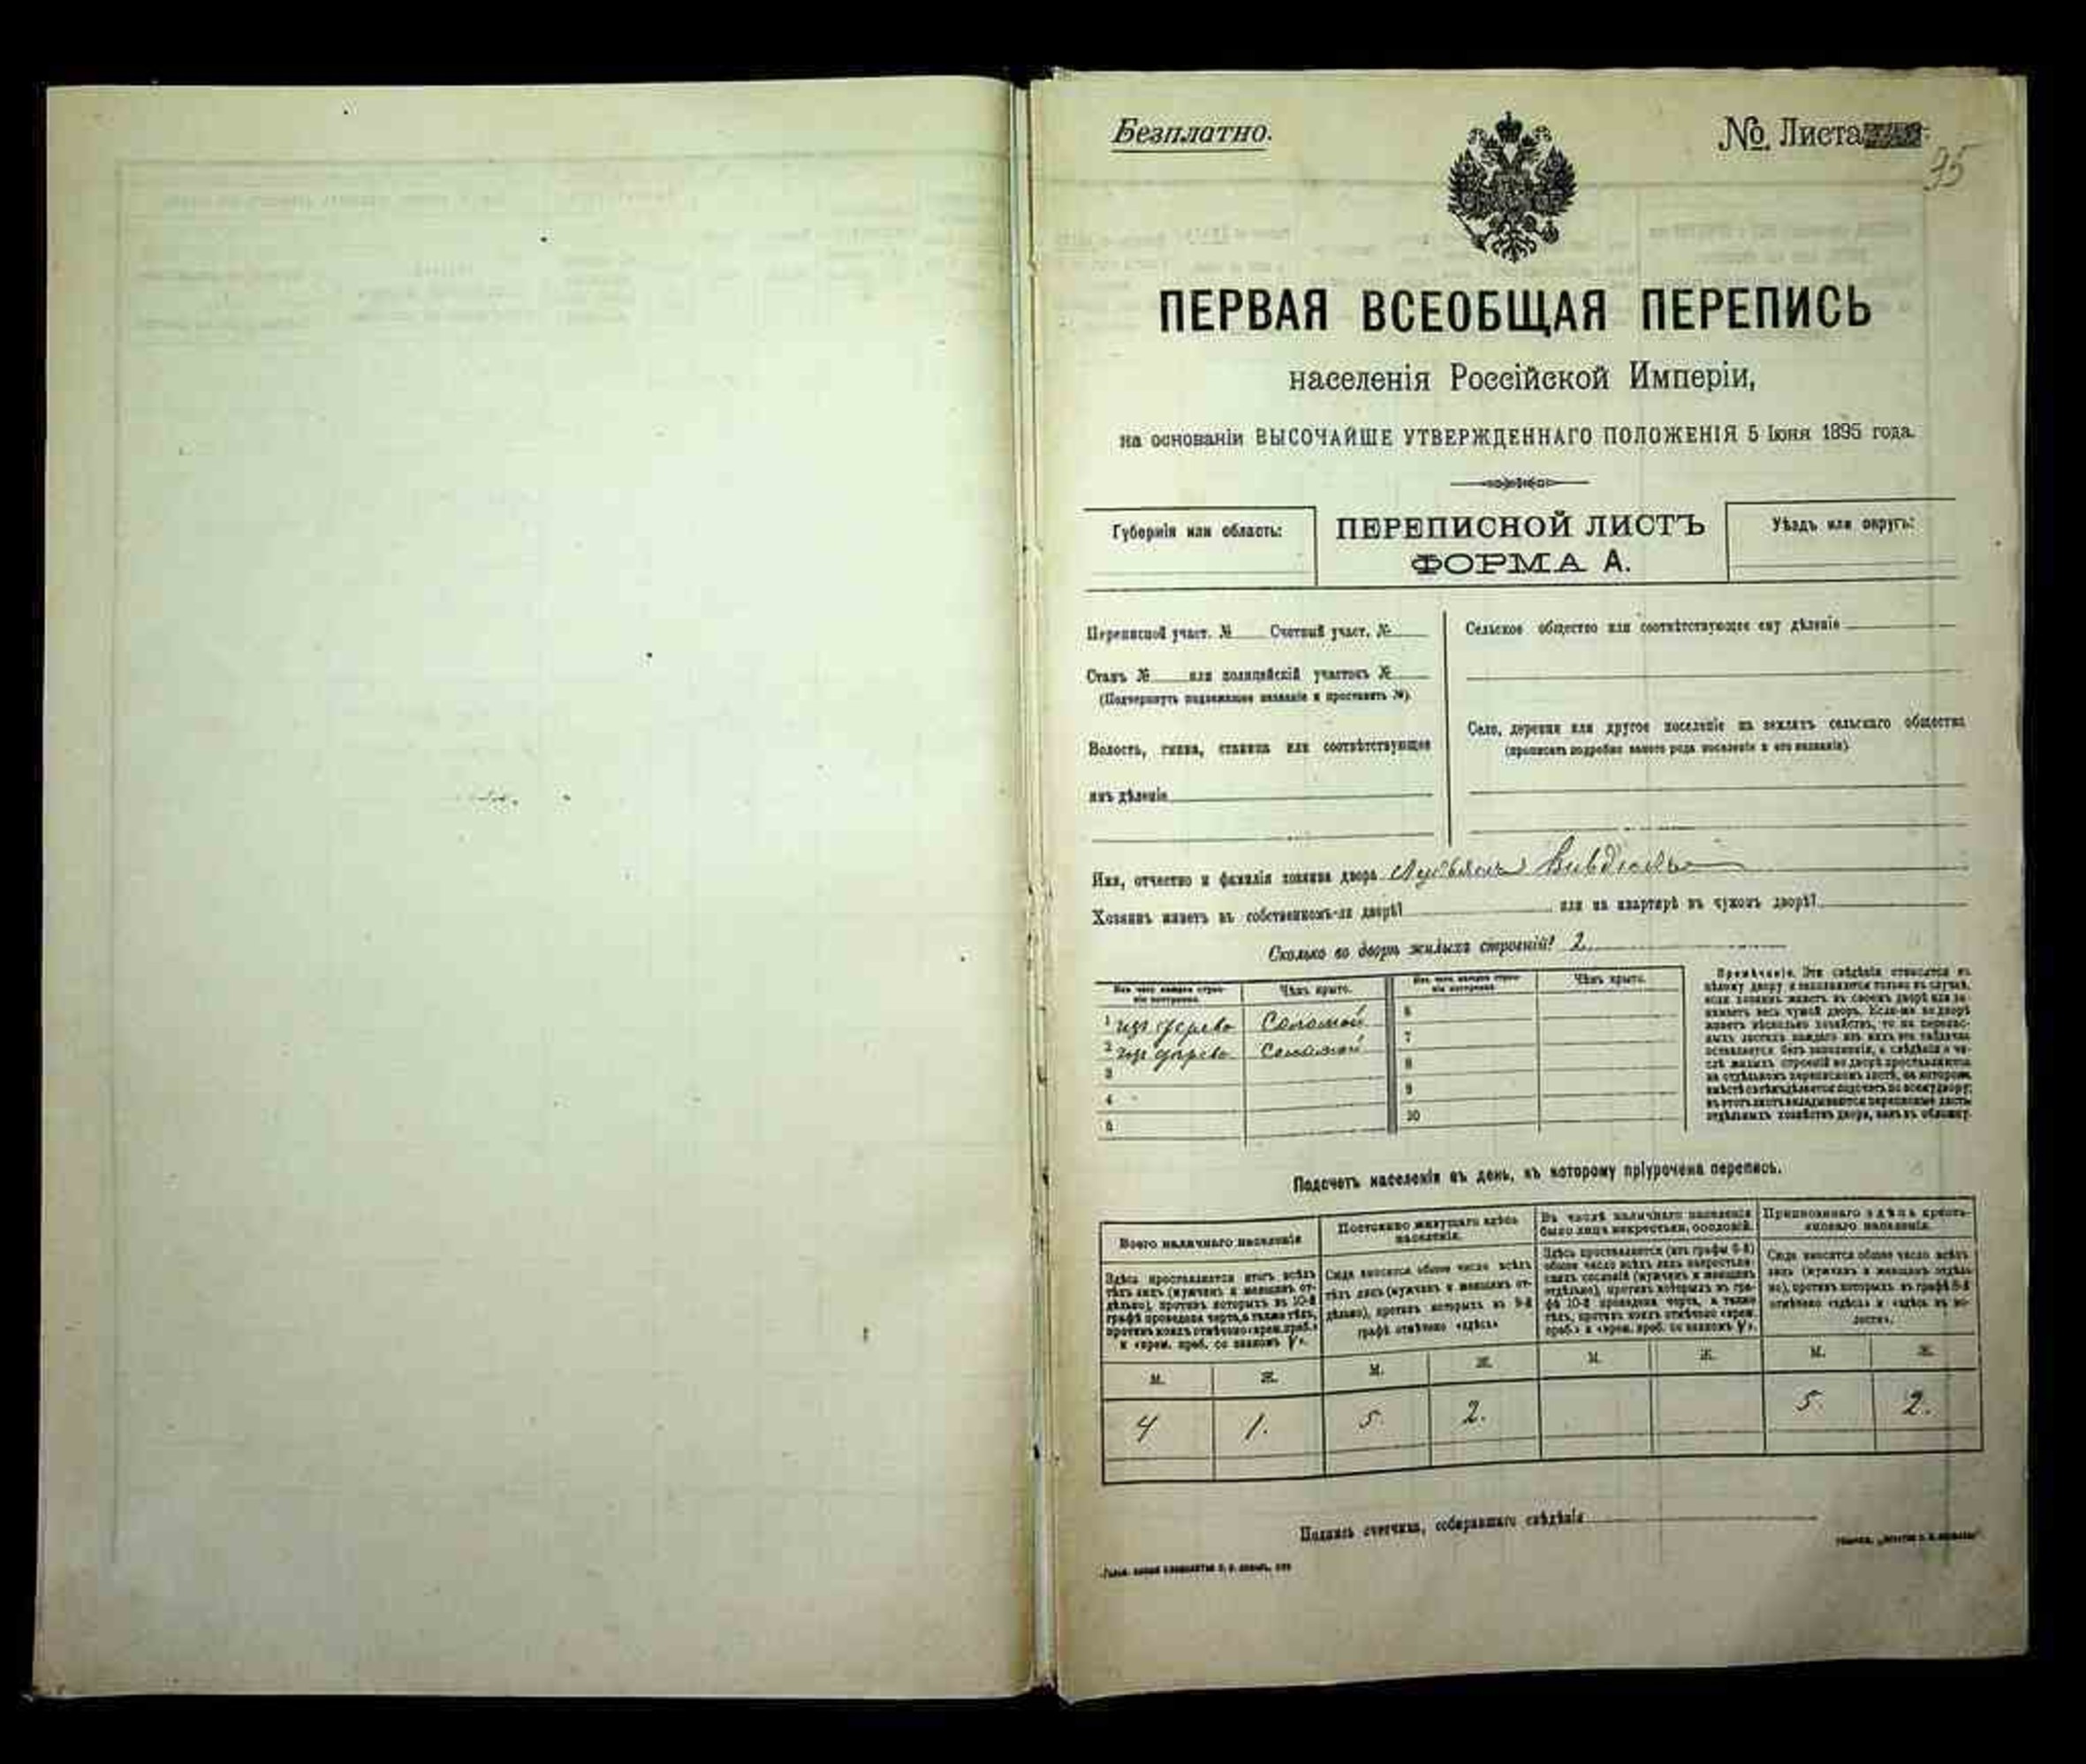 Безплатно.
№ Листа
95
ПЕРВАЯ ВСЕОБЩАЯ ПЕРЕПИСЬ
населенія Россійской Имперіи,
на основаніи ВЫСОЧАЙШЕ УТВЕРЖДЕННАГО ПОЛОЖЕНІЯ 5 Іюня 1895 года.
Губернія или область:
ПЕРЕПИСНОЙ ЛИСТЪ
ФОРМА А.
Уѣздъ или округъ:
Переписной участ. № Счетный участ. №
Станъ № или полицейскій участокъ №
(Подчеркнуть надлежащее названіе и проставить №).
Волость, гмина, станица или соотвѣтствующее
имъ дѣленіе
Сельское общество или соотвѣтствующее ему дѣленіе
Село, деревня или другое поселеніе на земляхъ сельскаго общества
(прописать подробно какого рода поселеніе и его названіе)
Имя, отчество и фамилія хозяина двора
Хозяинъ живетъ въ собственномъ-ли дворѣ? или на квартирѣ въ чужомъ дворѣ?
Сколько во дворѣ жилыхъ строеній? 2
Изъ чего каждое строе-
ніе построено.
Чѣмъ крыто.
Изъ чего каждое строе-
ніе построено.
Чѣмъ крыто.
1 изъ дерева Соломой 6
2 изъ дерева Соломой 7
3 8
4 9
5 10
Примѣчаніе. Эти свѣдѣнія относятся къ
цѣлому двору и заполняются только въ случаѣ,
если хозяинъ живетъ въ своемъ дворѣ или за-
нимаетъ весь чужой дворъ. Если-же во дворѣ
живетъ нѣсколько хозяйствъ, то на перепис-
ныхъ листахъ каждаго изъ нихъ эти свѣдѣнія
оставляются безъ заполненія, а свѣдѣнія о чи-
слѣ жилыхъ строеній во дворѣ проставляются
на отдѣльномъ переписномъ листѣ, на которомъ
вмѣстѣ съ тѣмъ дѣлается подсчетъ по всему двору;
въ этотъ листъ вкладываются переписные листы
отдѣльныхъ хозяйствъ двора, какъ въ обложку.
Подсчетъ населенія въ день, къ которому пріурочена перепись.
Всего наличнаго населенія
Постоянно живущаго здѣсь
населенія.
Въ числѣ наличнаго населенія
было лицъ некрестьян. сословій.
Приписаннаго здѣсь кресть-
янскаго населенія.
Здѣсь проставляется итогъ всѣхъ
тѣхъ лицъ (мужчинъ и женщинъ от-
дѣльно), противъ которыхъ въ 10-й
графѣ проведена черта, а также тѣхъ,
противъ коихъ отмѣчено «врем. преб.»
и «врем. преб. со знакомъ V».
Сюда вносится общее число всѣхъ
тѣхъ лицъ (мужчинъ и женщинъ от-
дѣльно), противъ которыхъ въ 9-й
графѣ отмѣчено «здѣсь»
Здѣсь проставляется (изъ графы 6-й)
общее число всѣхъ лицъ некрестьян-
скихъ сословій (мужчинъ и женщинъ
отдѣльно), противъ которыхъ въ гра-
фѣ 10-й проведена черта, а также
тѣхъ, противъ коихъ отмѣчено «врем.
преб.» и «врем. преб. со знакомъ V».
Сюда вносится общее число всѣхъ
лицъ (мужчинъ и женщинъ отдѣль-
но), противъ которыхъ въ графѣ 8-й
отмѣчено «здѣсь» и «здѣсь въ во-
лости».
М. Ж. М. Ж. М. Ж. М. Ж.
4 1. 5. 2. 5. 2.
Подпись счетчика, собиравшаго свѣдѣнія